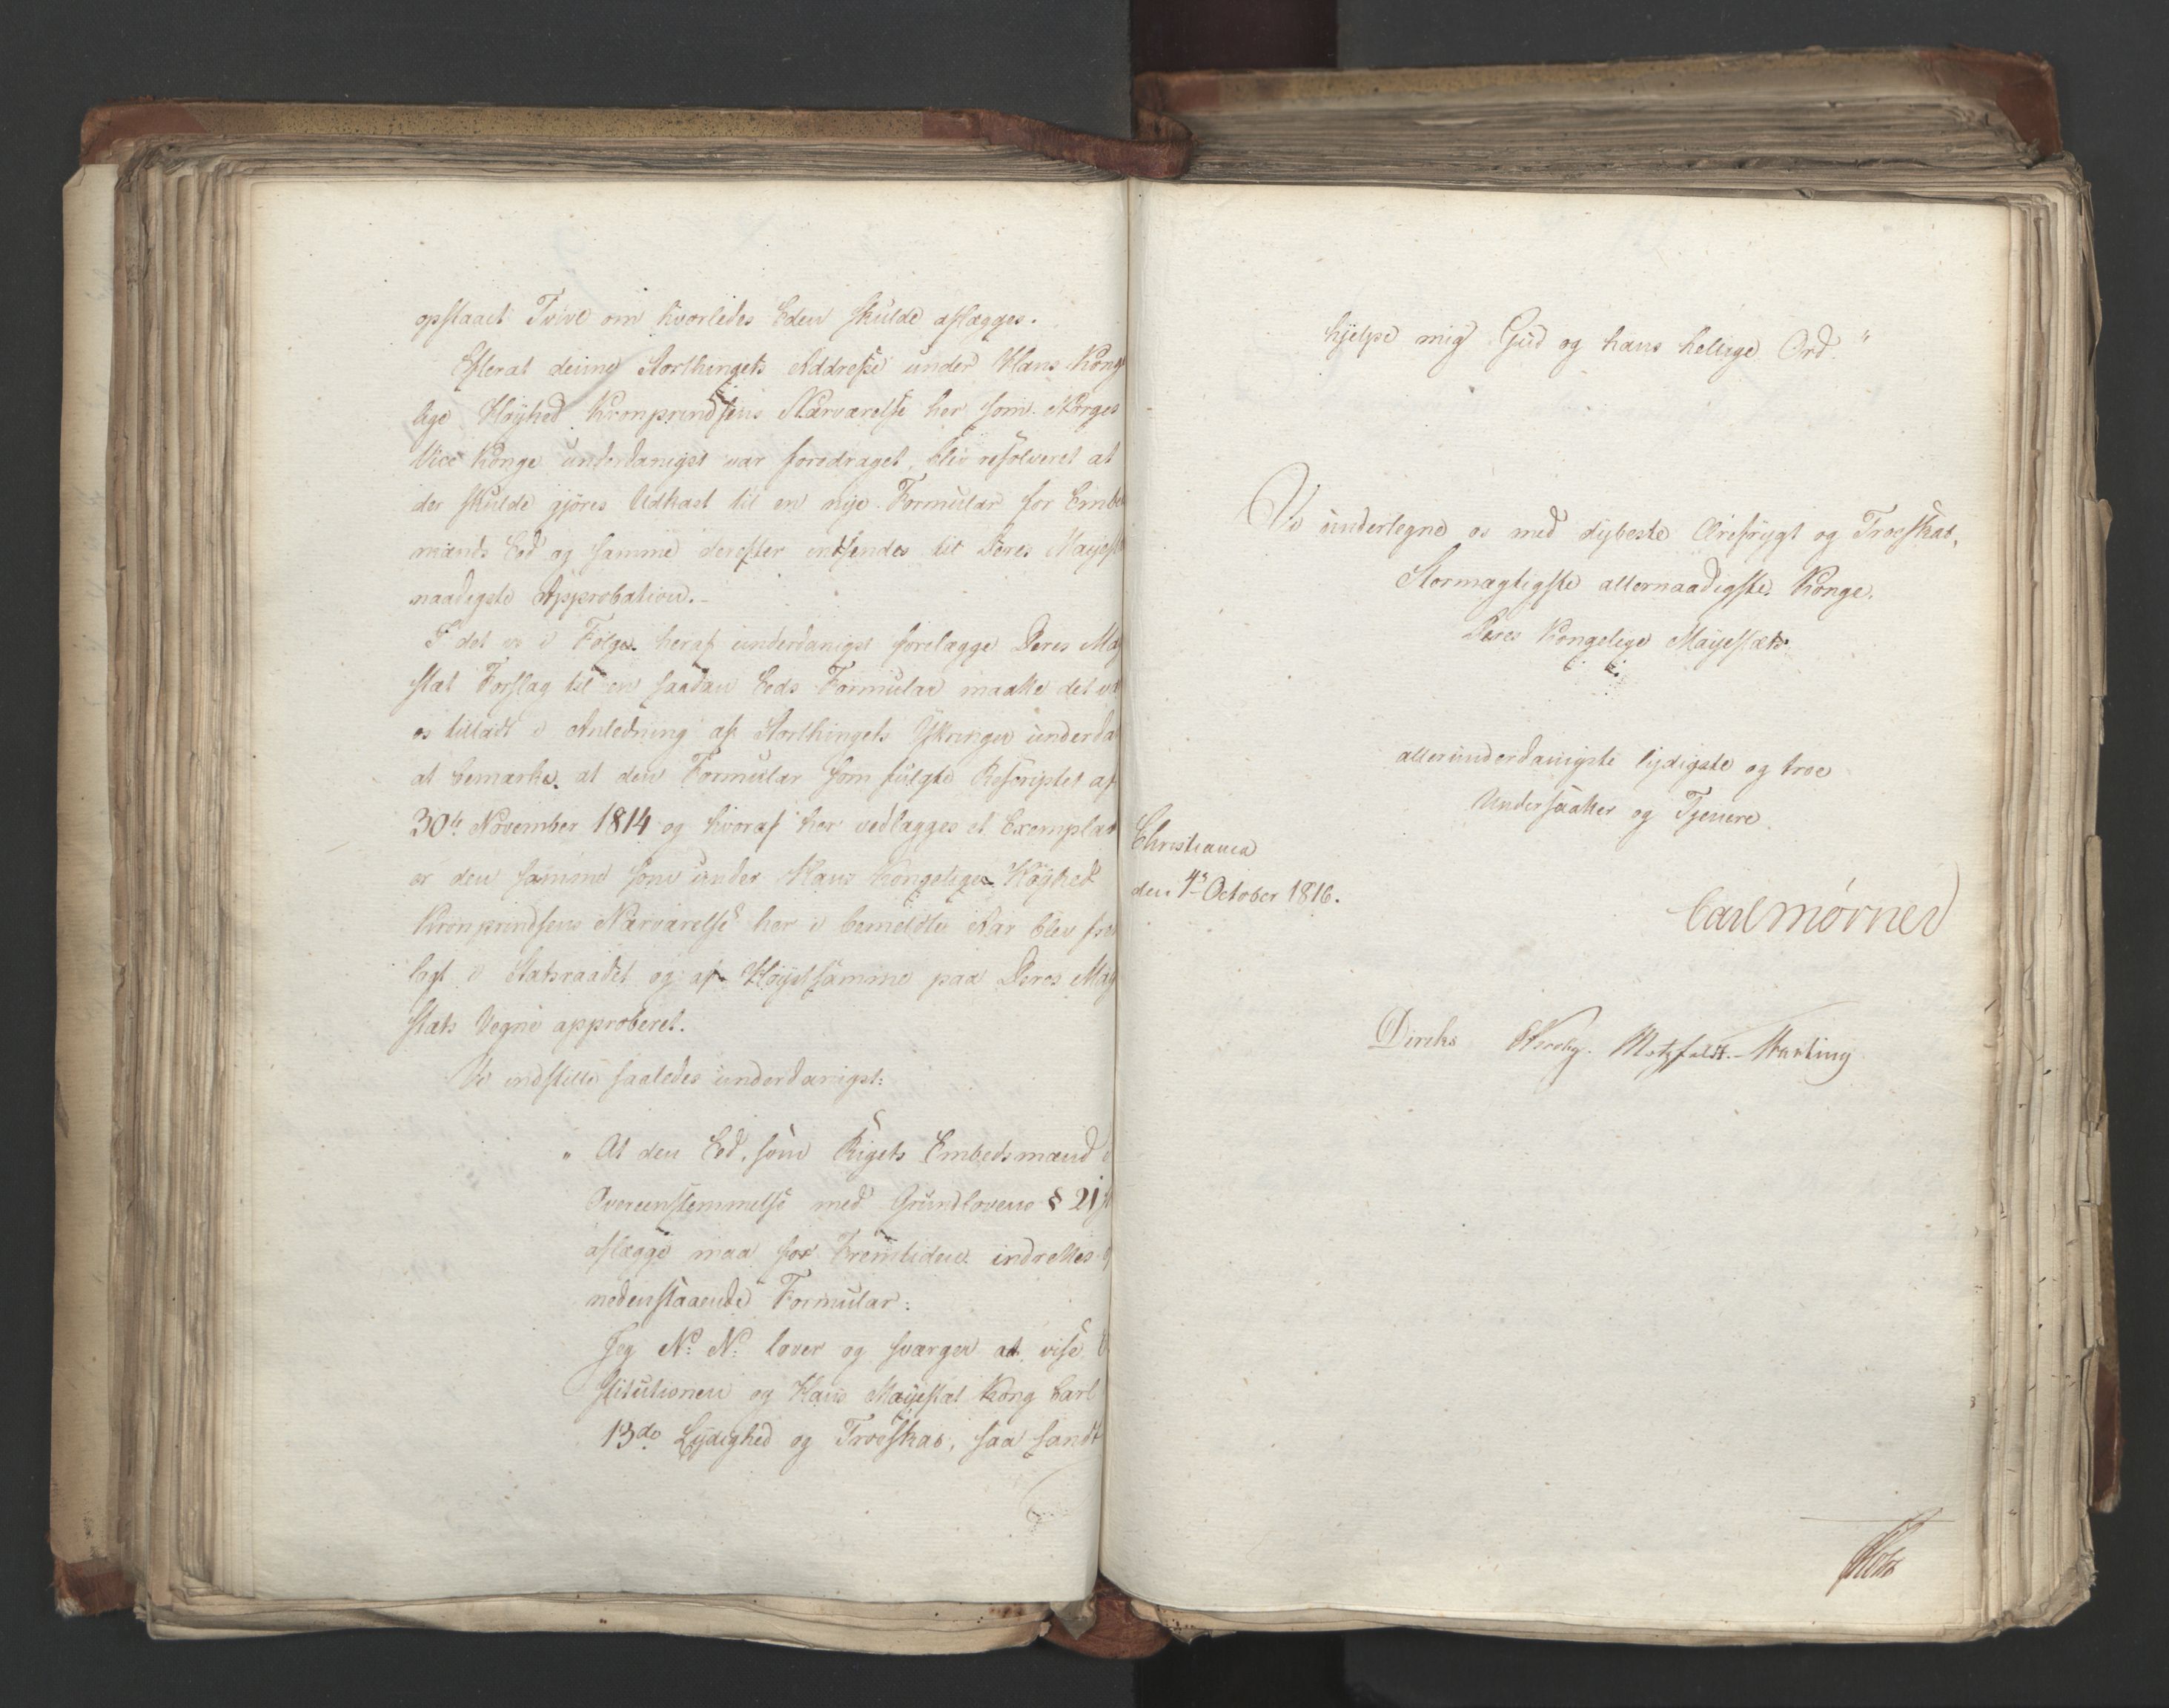 opstaaet Tvivl om hvorledes Eden skulde aflægges.
Efterat denne Storthingets Addresse under Hans Konge
lige Høyhed Kronprindsens Nærværelse her som Norges
Vice Konge underdanigst var foredraget, blev resolveret at
der skulde gjøres Udkast til en nye Formular for Embeds
mænds Eed og samme derefter indsendes til Deres Mayestæts
naadigste Approbation.-
I det vi i Følge heraf underdanigst forelægge Deres May
stæt Forslag til en saadan Eeds Formular maatte det være
os tilladt i Anledning af Storthingets Yttringer underda
at bemærke, at den Formular som fulgte Rescriptet af
30te November 1814 og hvoraf her vedlægges et Exemplar
er den samme som under Hans Kongelige Høyhed
Kronprindsens Nærværelse her i bemeldte Aar blev fre
lagt i Statsraadet og af Høystsamme paa Deres May
stæts Vegne approberet.
Vi indstille saaledes underdanigst:
" At den Eed, som Rigets Embedsmænd i
Overeenstemmelse med Grundlovens § 21
aflægge maa for Fremtiden indrettes
nedenstaaende Formular:
Jeg N: N: lover og sværger at vise
stitutionen og Hans Mayestæt Kong Carl
13de Lydighed og Troeskab, saa sandt
hjelpe mig Gud og hans hellige Ord."
Vi undertegne os med dybeste Ærefrygt og Troeskab,
Stormægtigste allernaadigste Konge,
Deres Kongelige Mayestæts
allerunderdanigste lydigste og troe
Undersaatter og Tjenere
Christiania
den 4de October 1816.
Carl Mörner
Diriks Hegerman. Motzfeldt. Krohg